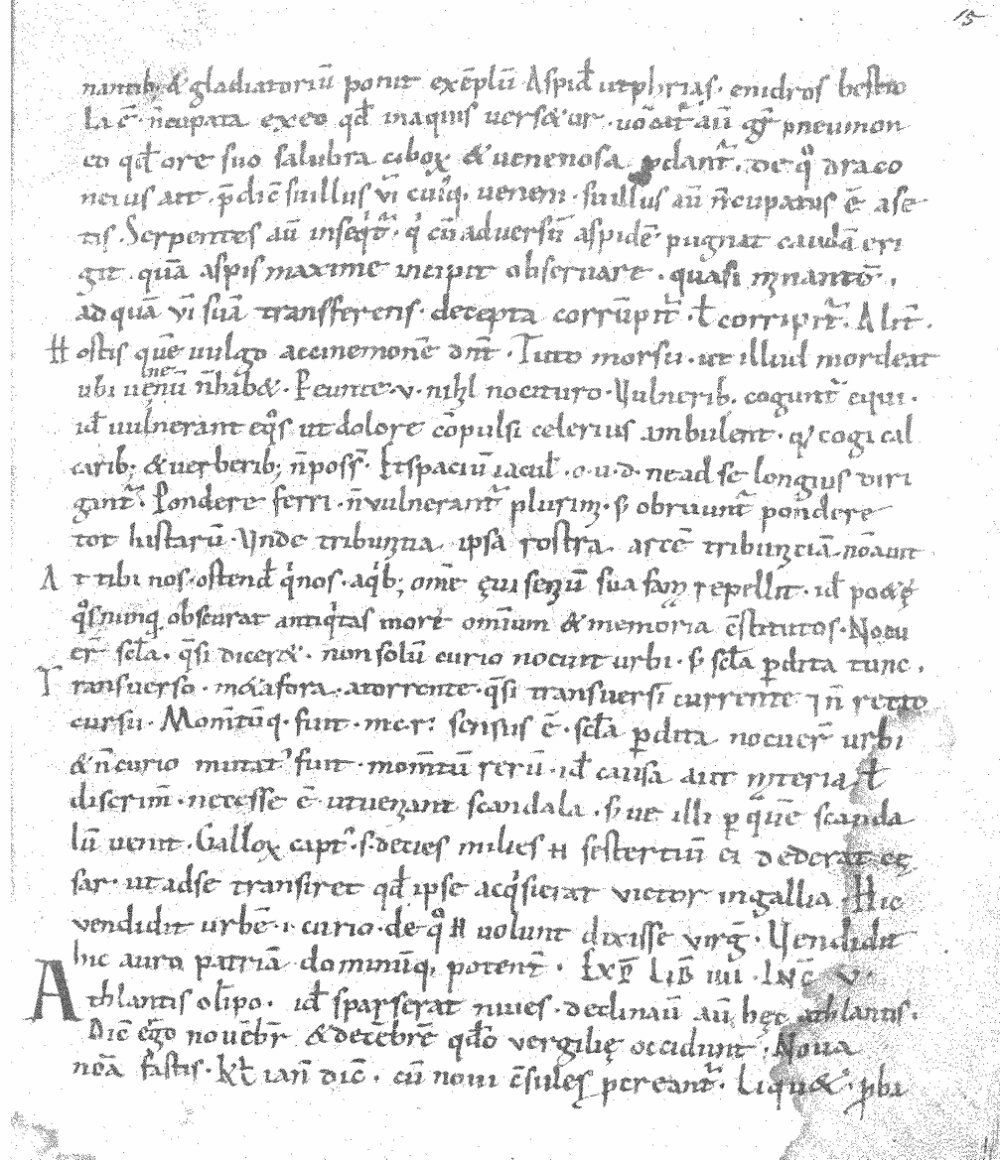 15
nantib; & gladiatoriū ponit exēplū Aspid̄ ut phrias. enidros bestio
la ē. n̄cupata ex eo qđ in aquis uers&ur. uocat aū gr̄ pneumon
eo qđ ore suo salubra cibox & uenenosa pdant᷑. de qͦ draco
neius ait. p̄dic̄ suillus uī cuiꝗ, uenem. suillus aū n̄cupatus ē ase
tis. Serpentes aū inseqͥt᷑. qͥ cū aduersū aspidē pugnat caudā eri
git. quā aspis maxime incipit obseruare. quasi
ad quā uī suā transferens. decepta corrūpit᷑. ł corripit᷑. Alit᷑.
Hostis quē uulgo accinemonē dn̄t. Tuto morsu. ut illud mordeat
ubi uenū n̄ hab&. Peunte. v. nihl nocituro. Vulnerib, cogunt᷑ equi.
id̄ uulnerant eqͦs ut dolore cōpulsi celerius ambulent. cogi cal
carib; & uerberib; n̄ poss̄. Et spaciū iacul̄. o. u. d. ne ad se longius diri
gant᷑. Pondere ferri. n̄ vulnerant᷑ plurim. s; obruunt᷑ pondere
tot hastarū. Vnde tribunitia ipsa rostra. arcē tribuniciā nōauit
At tibi nos. ostend̄ qͥ nos. aqͥb; omē sua fam repellit. id̄
qͦs nunꝗ obscurat antiqͥtas more omīum & memoria c̄stitutos. Nocu
er̄ scl̄a. qͣsi dicer&. non solū curio nocuit urbi. s; scl̄a pdita tunc.
Transuerso. m&afora. a torrente. qͣsi transuersī currente ⁊ n̄ recto
cursu. Momtūꝗ. fuit. mcr: sensus ē. scl̄a pdita nocuer̄ urbi
& n̄ curio mutat᾽ fuit. momtū rerū. id̄ causa aut materia ł
discrim̄. necesse ē. ut ueniant scandala. s; ue illi p quē scanda
lū uenit. Gallox capt᾽. s. decies milies H sestertiū ei dederat cę
sar. ut ad se transiret qđ ipse acqͥsierat victor in gallia. Hic
vendidit urbē. i. curio. de qͦ H uolunt dixisse virḡ. Vendidit
hic auro patriā dominūꝗ, potent̄. EXP̄ LIB̄ IIII. INC̄ V.
Athlantis olīpo. id̄ sparserat niues. declinaū aū hęc athlantis.
Dic̄ ego nouēbr̄ & decēbrē qđo vergilię occidunt. Noua
noā fastis. kł ian̄ dic̄. cū noui c̄sules pereant᷑. Liqu&. pbi